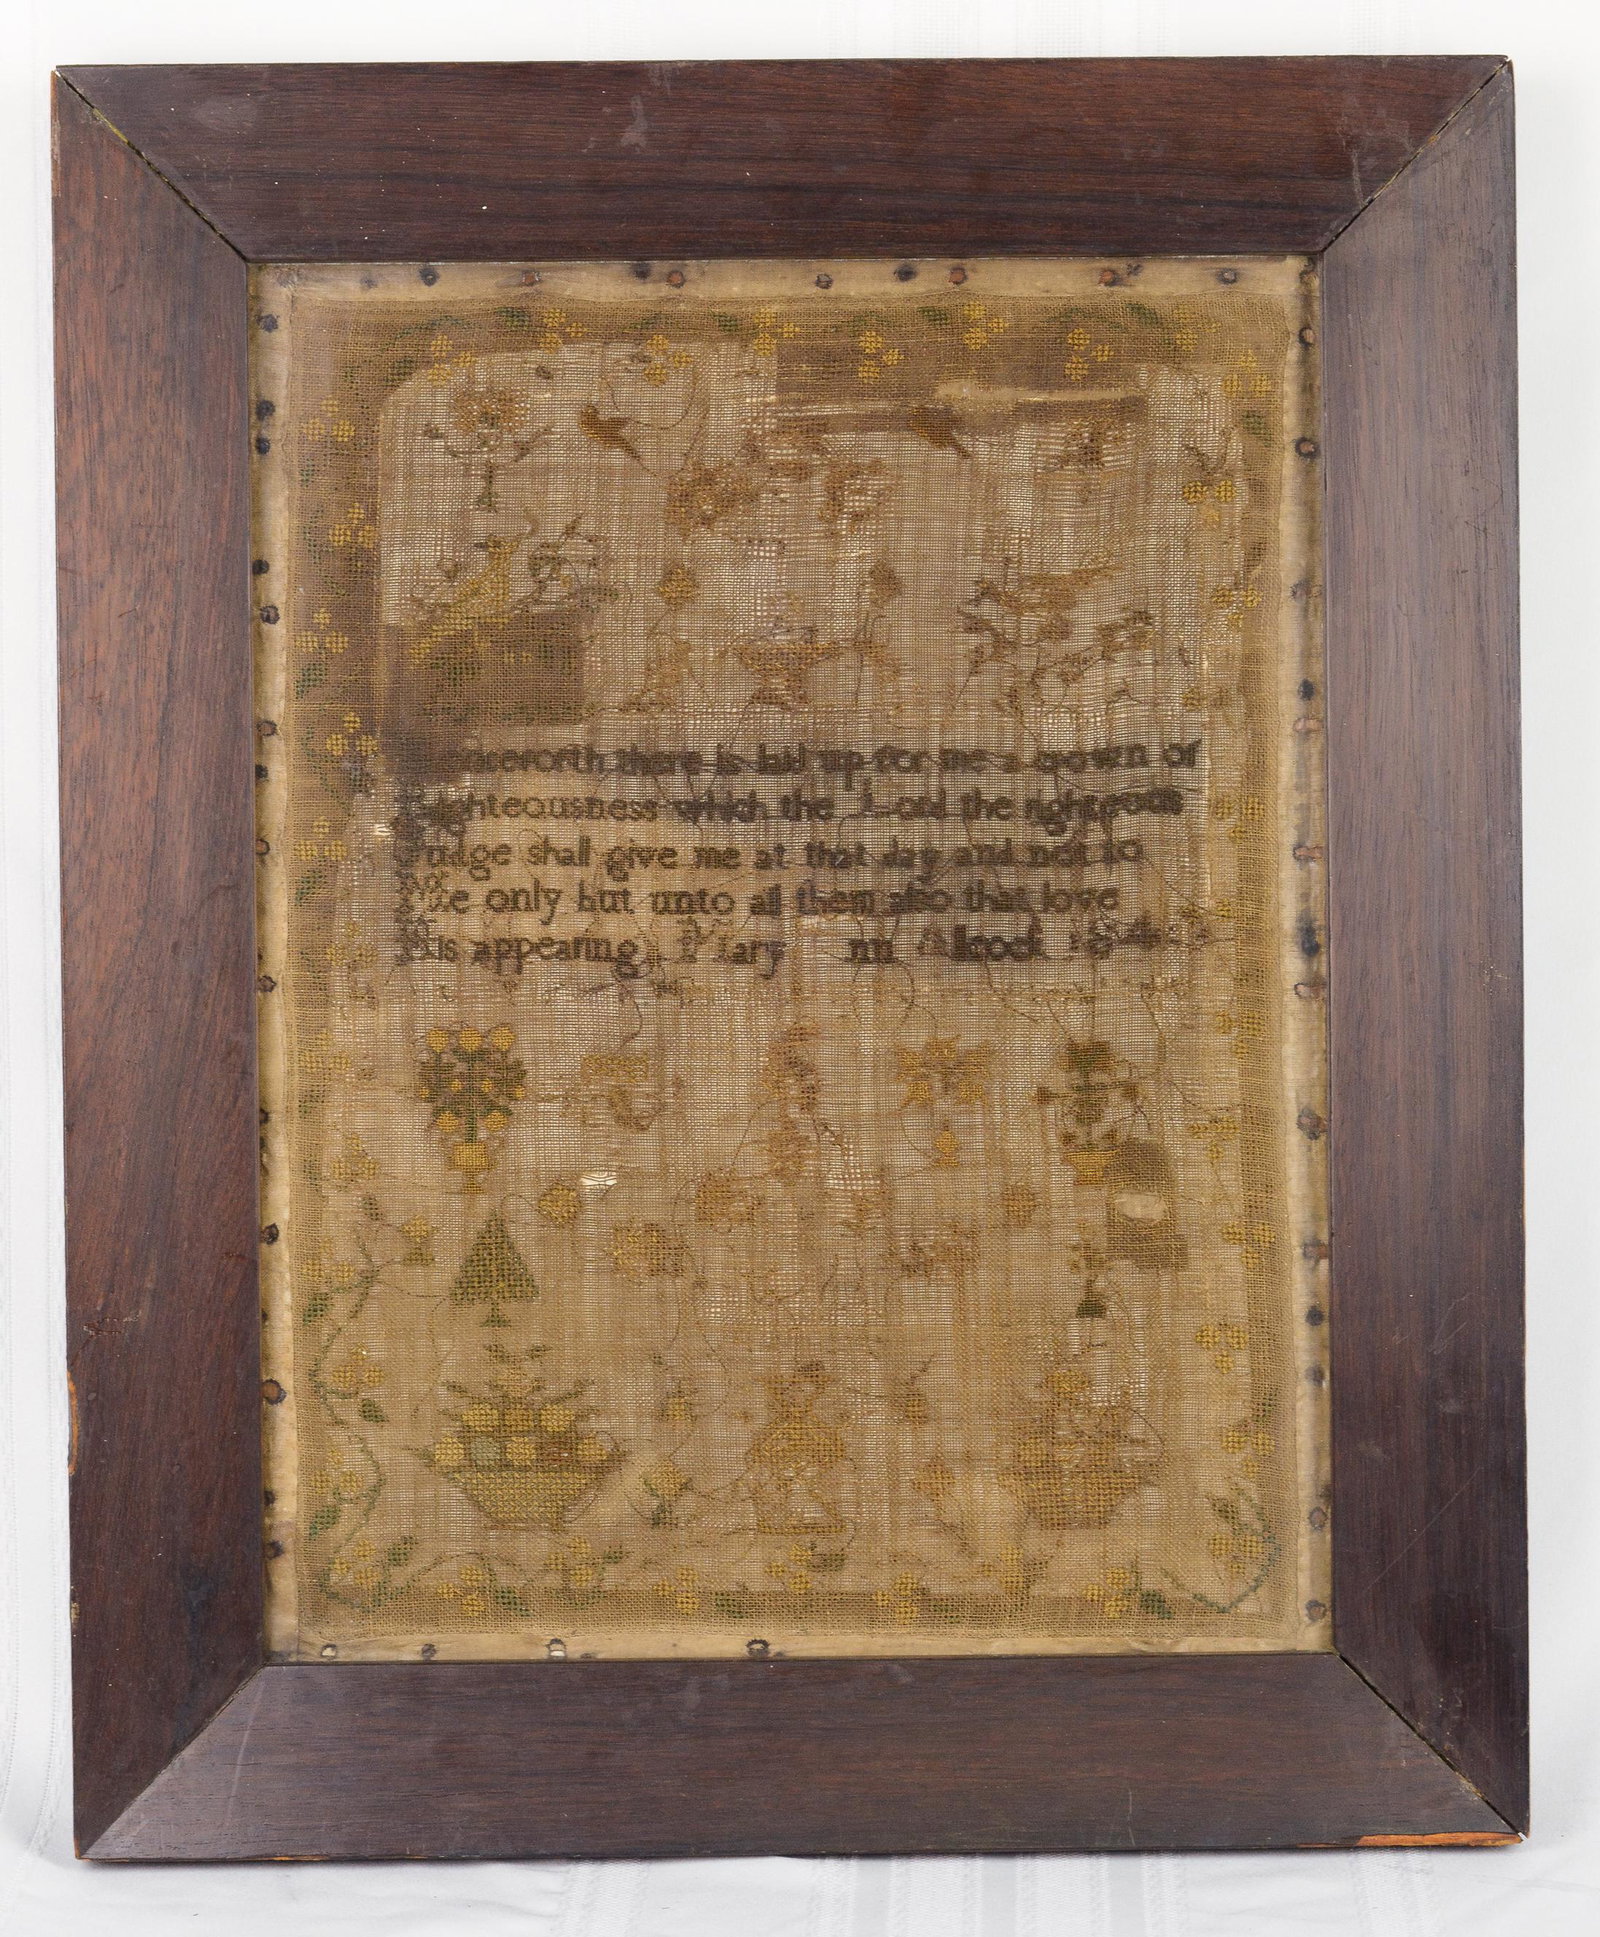 Henceforth there is laid up for me a crown of
Righteousness which the Lord the righteous
Judge shall give me at that day and not to
Me only but unto all them also that love
His appearing Mary Ann Allcock